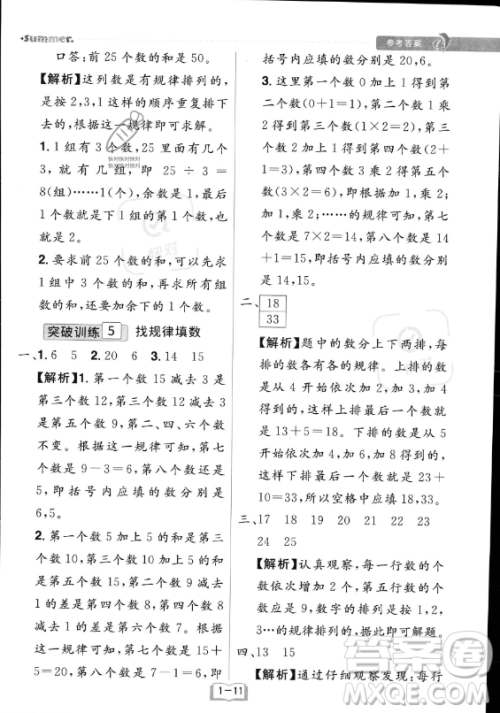 summer.
参考答案
口答：前 25 个数的和是 50。
【解析】这列数是有规律排列的，
是按 2,3,1 这样的顺序重复排列
的，根据这一规律即可求解。
1. 1 组有 3 个数，25 里面有几个
3，就有几组，即 25 ÷ 3 =
8(组)……1(个)，有余数，余数是
1，那么第 25 个数就是下一组的
第一个数，1 组的第一个数是 2，
也就是 2。
2. 要求前 25 个数的和，可以先求
1 组中 3 个数的和，再求所有组
数的和，最后加上剩余数即可
求解。
突破训练 5 找规律填数
一、1. 6 5 2. 20 6 3. 14 15
【解析】1. 第一个数 15 减去 3 是
第三个数 12，第三个数 12 减去 3
是第五个数 9，第二、四、六个数
不变。根据这一规律可知，第七个
数是 9－3＝6，第八个数还是
5，即括号内应填的数分别是
6,5。
2. 第一个数 5 加上 5 是第三个
数 10，第三个数 10 加上 5 是第
五个数 15，第二个数 9 与第四个
数 8 的差是 1，第四个数 8 减去
1 的差是第六个数 7。根据这一
规律可知，第七个数是 15＋
5＝20，第八个数是 7－1＝6，即
括号内应填的数分别是 20,6。
3. 这里第一个数 0 加上 1 得到第
二个数(0＋1＝1)，第二个数 1 乘
2 得到第三个数(1×2＝2)，第三
个数 2 加上 1 得到第四个数
(2＋1＝3)，第四个数 3 乘 2 得到
第五个数(3×2＝6)，第五个数 6
加上 1 得到第六个数(6＋1＝
7)，即按加 1，乘 2；加 1，乘 2；
加 1，乘 2；……的规律可知，第七
个数是 7×2＝14，第八个数是 14
＋1＝15，即括号内应填的数分别
是 14,15。
二、
18
33
【解析】题中的数分上、下两排，
每排各有各的规律。上排的数从
4 开始依次加 2，加 3，加 4，加
5，所以空格中上面应填的数是
13＋5＝18。下排的数从 5
开始依次加 2，加 4，加 8 而得到，
这样下排最后的一个数是 23＋
10＝33，所以空格中应填写
三、17 18 19 20 21 22
23 24
【解析】认真观察，每一行的个
数依次增加 2，即个数为 1,3,5,
7,…。数字的排列是按 1,2,
3,…的规律排列的。
四、13 15
【解析】通过仔细观察发现，每行
1－11
快对快对快对
快对